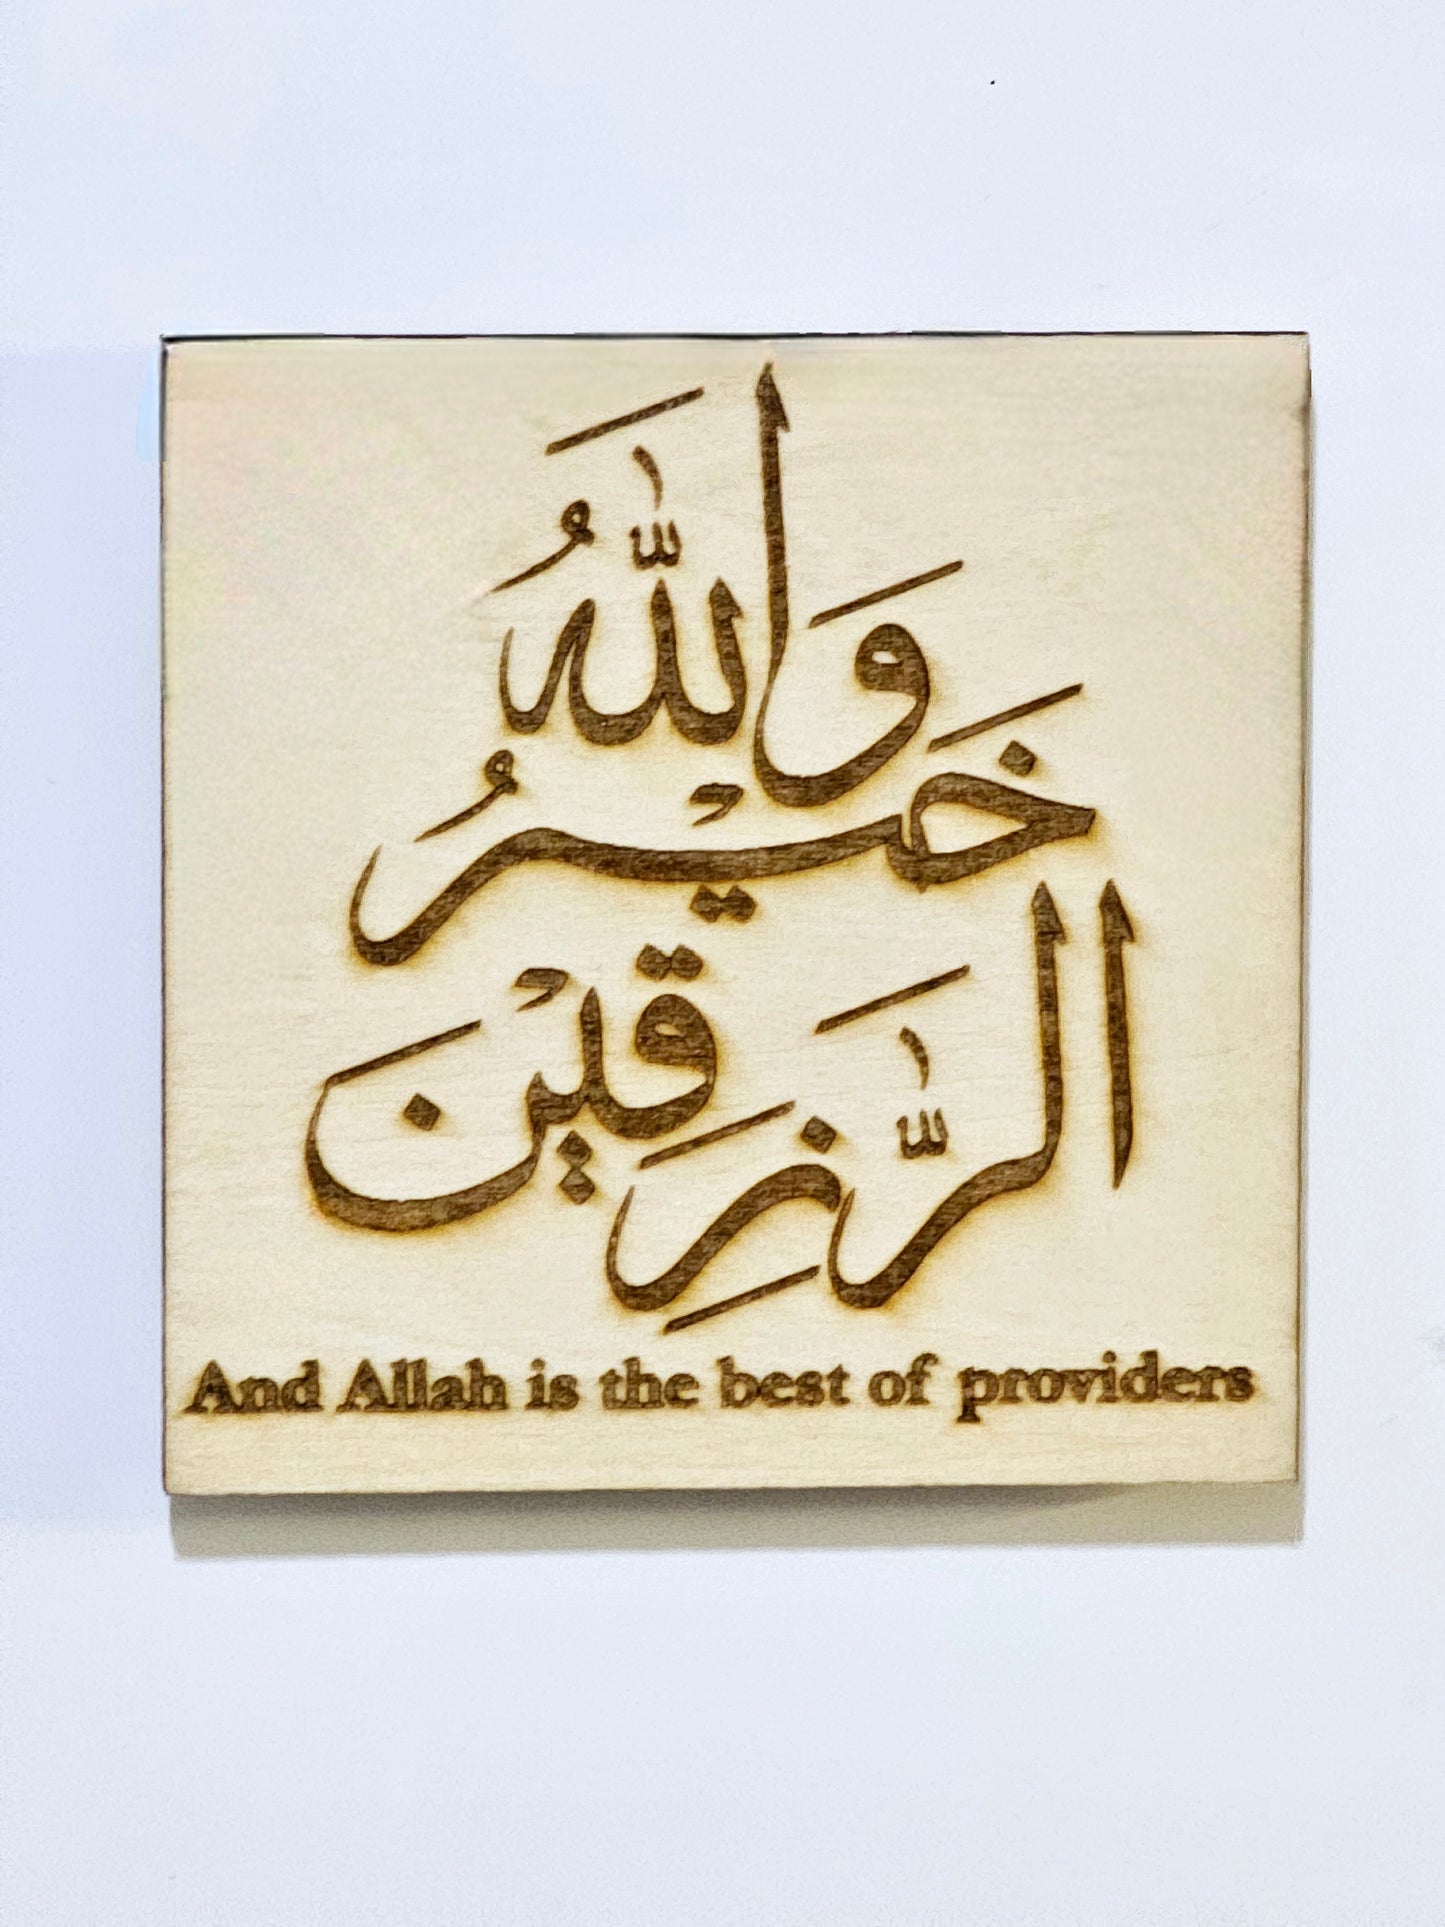 وَاللَّهُ
خَيْرُ
الرَّٰزِقِينَ
And Allah is the best of providers